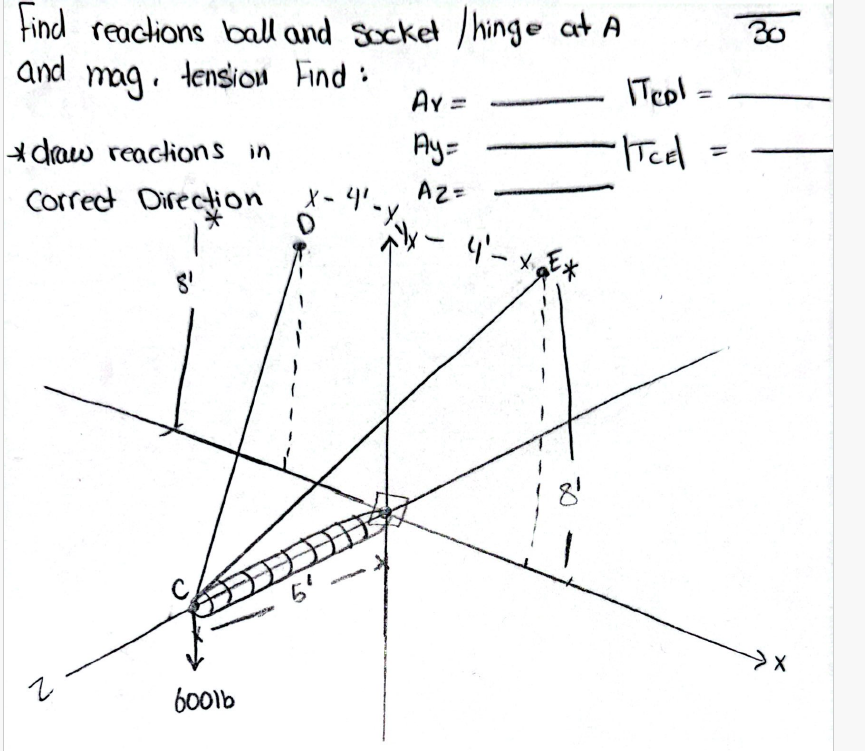 Find reactions ball and socket /hinge at A
30
and mag. tension Find:
Ax = |TCD| =
*draw reactions in
Ay= |TCE| =
Correct Direction
Az=
x- 4'-x
y
x- 4'- x
*
D
E*
8'
8'
C
5'
x
x
z
600lb
x